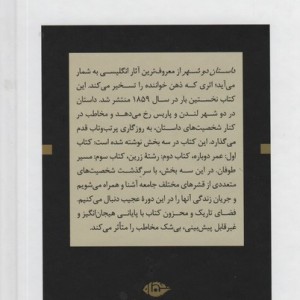 داستان دو شهر از معروف‌ترین آثار انگلیسی به شمار
می‌آید؛ اثری که ذهن خواننده را تسخیر می‌کند. این
کتاب نخستین بار در سال ۱۸۵۹ منتشر شد. داستان
در دو شهر لندن و پاریس رخ می‌دهد و مخاطب در
کنار شخصیت‌های داستان، به روزگاری پرتب‌وتاب قدم
می‌گذارد. این کتاب در سه بخش نوشته شده است: کتاب
اول: عمر دوباره، کتاب دوم: رشتهٔ زرین، کتاب سوم: مسیر
طوفان. در این سه بخش، با سرگذشت شخصیت‌های
متعددی از قشرهای مختلف جامعه آشنا و همراه می‌شویم
و جریان زندگی آنها را در این دورهٔ عجیب دنبال می‌کنیم.
فضای تاریک و محزون کتاب با پایانی هیجان‌انگیز و
غیرقابل پیش‌بینی، بی‌شک مخاطب را متأثر می‌کند.